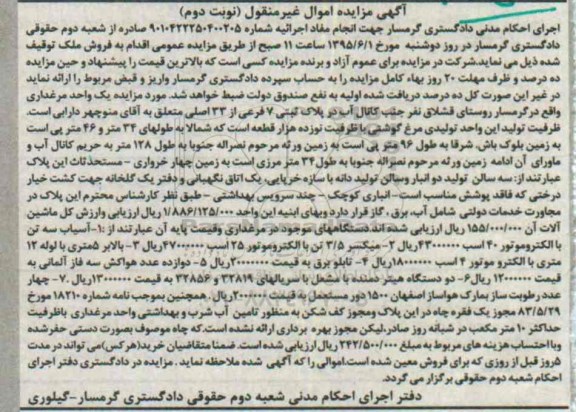 آگهی مزایده اموال غیرمنقول (نوبت دوم)
اجرای احکام مدنی دادگستری گرمسار جهت انجام مفاد اجرائیه شماره ۹۰۱۰۴۲۲۲۵۰۴۰۰۲۰۵ صادره از شعبه دوم حقوقی
دادگستری گرمسار در روز دوشنبه مورخ ۱۳۹۵/۶/۱ ساعت ۱۱ صبح از طریق مزایده عمومی اقدام به فروش ملک توقیف
شده ذیل می نماید.شرکت در مزایده برای عموم آزاد و برنده مزایده کسی است که بالاترین قیمت را پیشنهاد و حین مزایده
ده درصد و ظرف مهلت ۲۰ روز بهاء کامل مزایده را به حساب سپرده دادگستری گرمسار واریز و قبض مربوط را ارائه نماید
در غیر این صورت کل ده درصد دریافت شده اولیه به نفع صندوق دولت ضبط خواهد شد. مورد مزایده یک واحد مرغداری
واقع درگرمسار روستای قشلاق نفر جنب کانال آب در پلاک ثبتی ۷ فرعی از ۳۳ اصلی متعلق به آقای منوچهر دارابی است.
ظرفیت تولید این واحد تولیدی مرغ گوشتی با ظرفیت نوزده هزار قطعه است که شمالا به طولهای ۳۴ متر و ۴۶ متر پی است
به زمین بلوک باش، شرقا به طول ۹۶ متر پی است به زمین ورثه مرحوم نصراله جنوبا به طول ۱۲۸ متر به حریم کانال آب و
ماورای آن ادامه زمین ورثه مرحوم نصراله جنوبا به طول ۳۴ متر مرزی است به زمین چهار خرواری – مستحدثات این پلاک
عبارتند از: سه سالن تولید دو انبار وسالن تولید دانه با سازه خرپایی، یک اتاق نگهبانی و دفتر یک گلخانه جهت کشت خیار
درختی که فاقد پوشش مناسب است– انباری کوچک – چند سرویس بهداشتی – طبق نظر کارشناس محترم این پلاک در
مجاورت خدمات دولتی شامل آب، برق، گاز قرار دارد وبهای ابنیه این واحد ۱/۸۸۶/۱۲۵/۰۰۰ ریال ارزیابی وارزش کل ماشین
آلات آن ۱۵۵/۰۰۰/۰۰۰ ریال ارزیابی شده اند.دستگاههای موجود در مرغداری وقیمت پایه آن عبارتند از :۱-آسیاب سه تن
با الکتروموتور ۴۰ اسب ۴۳۰۰۰۰۰۰ ریال ۲- میکسر ۳/۵ تن با الکتروموتور ۲۵ اسب ۴۷۰۰۰۰۰۰ ریال ۳- بالابر ۵متری با لوله ۱۲
متری با الکترو موتور ۴ اسب ۱۸۰۰۰۰۰۰ ریال ۴- تابلو برق به قیمت ۲۰۰۰۰۰۰۰ ریال ۵- دوازده عدد هواکش سه فاز آلمانی به
قیمت ۱۲۰۰۰۰۰۰ ریال ۶- دو دستگاه هیتر دمنده با مشعل با سریالهای ۳۲۸۱۹ و ۳۲۸۵۶ به قیمت ۱۳۰۰۰۰۰۰ ریال ۷- چهار
عدد رطوبت ساز بمارک هواساز اصفهان ۱۵۰۰ دور مستعمل به قیمت ریال همچنین بموجب نامه شماره ۱۸۲۱۰ مورخ
۸۳/۵/۲۹ مجوز یک فقره چاه در این پلاک ومجوز کف شکن به منظور تامین آب شرب و بهداشتی واحد مرغداری باظرفیت
حداکثر ۱۰ متر مکعب در شبانه روز صادر،لیکن مجوز بهره برداری ارائه نشده است.که چاه موصوف بصورت دستی حفرشده
وبااحتساب هزینه های مربوط به مبلغ ۲۴۲/۵۰۰/۰۰۰ ریال ارزیابی شده است. ضمنا متقاضیان خرید(هرکس)می تواند در مدت
۵روز قبل از روزی که برای فروش معین شده است.اموالی را که آگهی شده ملاحظه نماید . مزایده در دادگستری دفتر اجرای
احکام شعبه دوم حقوقی برگزار می گردد.
دفتر اجرای احکام مدنی شعبه دوم حقوقی دادگستری گرمسار-گیلوری